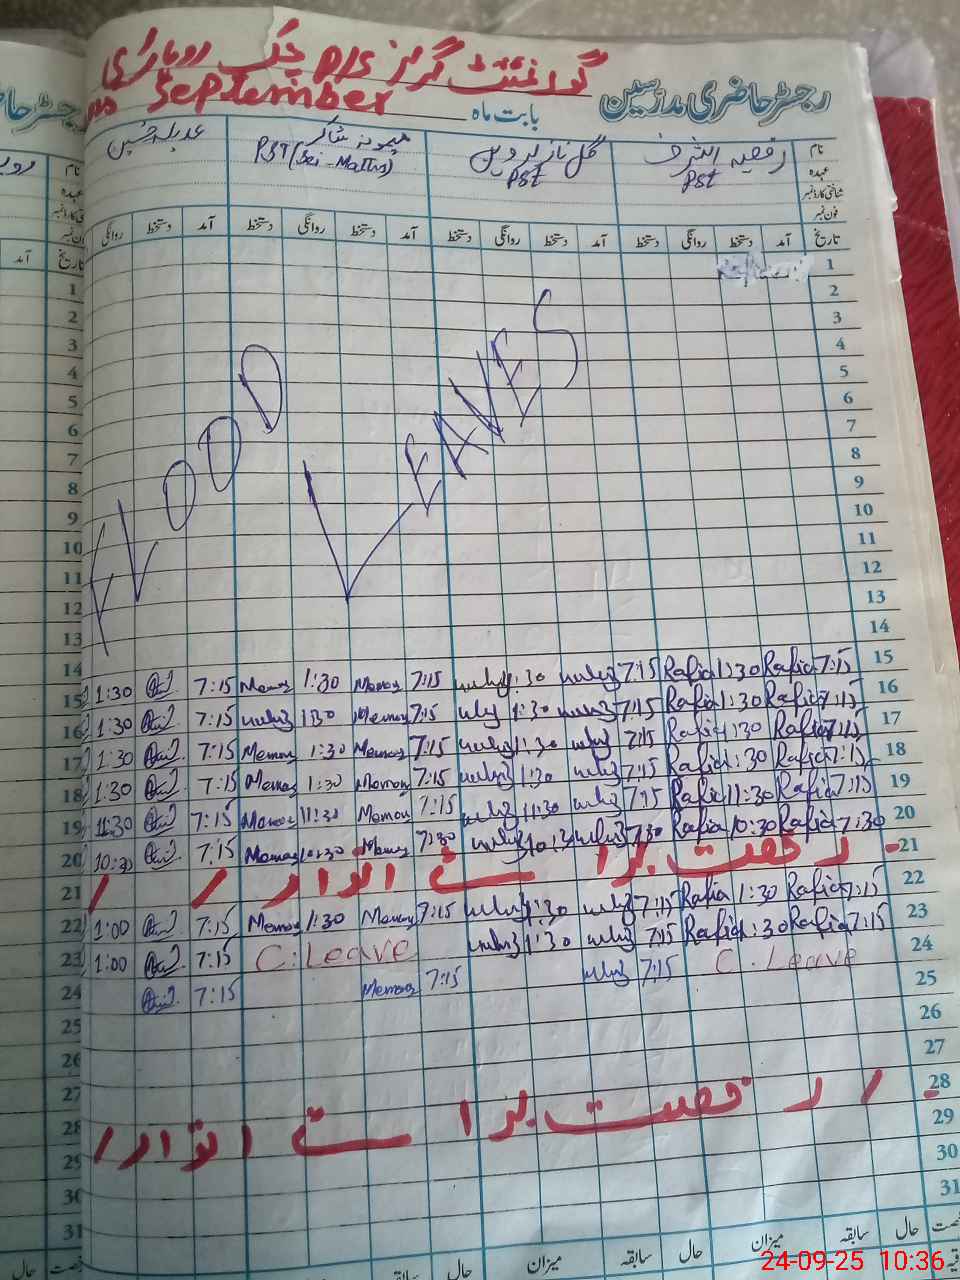 گورنمنٹ گرلز P/S چک روہاڑی
رجسٹر حاضری مدرسین
بابت ماہ September
نام رفعیہ اشرف گل ناز پروین میمونہ شاکر عدیلہ حسین
عہدہ PST PST PST (Sci-Math)
شناختی کارڈ نمبر
فون نمبر
تاریخ آمد دستخط روانگی دستخط آمد دستخط روانگی دستخط آمد دستخط روانگی دستخط آمد دستخط روانگی
1
2
3
4
5
6
7
8
9
10
11
12
13
14
FLOOD LEAVES
15 7:15 Rafia 1:30 Rafia 7:15 1:30 7:15 Memona 1:30 Memona 7:15 1:30
16 7:15 Rafia 1:30 Rafia 7:15 1:30 7:15 Memona 1:30 7:15 1:30
17 7:15 Rafia 1:30 Rafia 7:15 1:30 7:15 Memona 1:30 Memona 7:15 1:30
18 7:15 Rafia 1:30 Rafia 7:15 1:30 7:15 Memona 1:30 Memona 7:15 1:30
19 7:15 Rafia 11:30 Rafia 7:15 11:30 7:15 Memona 11:30 Memona 7:15 11:30
20 7:30 Rafia 10:30 Rafia 7:30 10:30 7:30 Memona 10:30 Memona 7:15 10:30
21 رخصت برائے اتوار
22 7:15 Rafia 1:30 Rafia 7:15 1:30 7:15 Memona 1:30 Memona 7:15 1:00
23 7:15 Rafia 1:30 Rafia 7:15 1:30 C. Leave 7:15 1:00
24 C. Leave 7:15 7:15 Memona 7:15
25
26
27
28 رخصت برائے اتوار
29
30
31
حال سابقہ میزان حال سابقہ میزان حال سابقہ
24-09-25 10:36